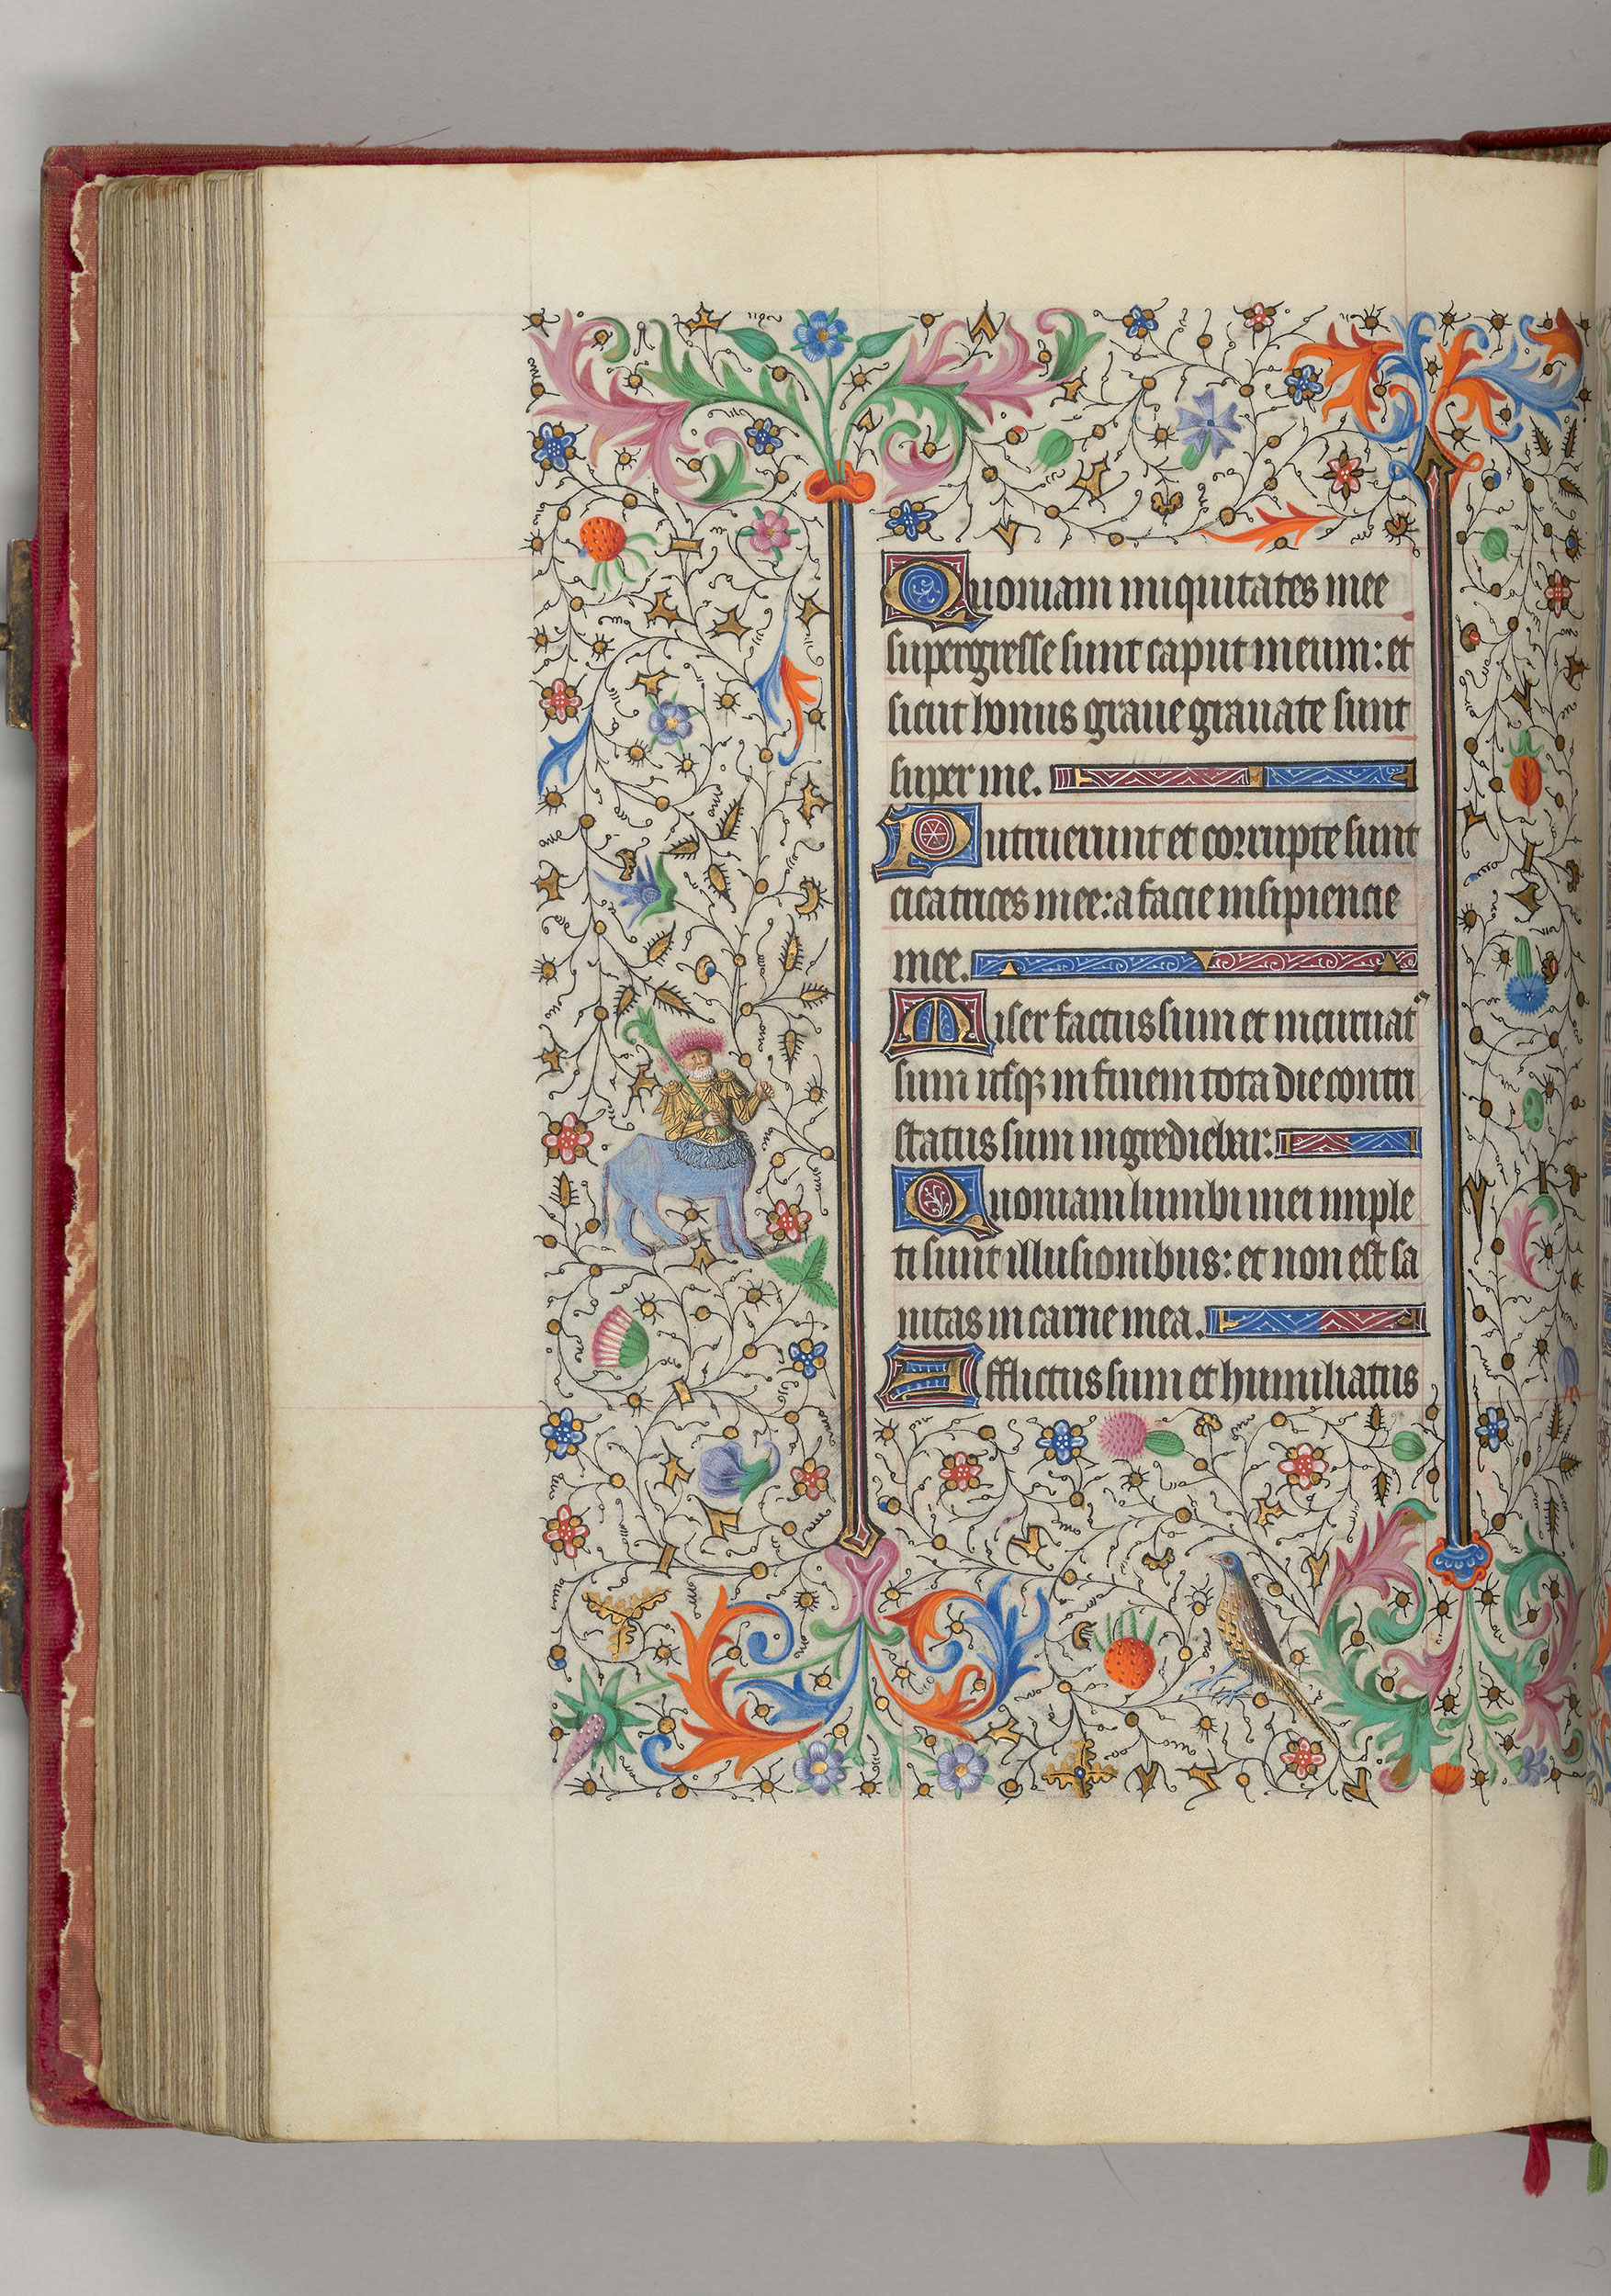 Quoniam iniquitates mee
supergresse sunt caput meum: et
sicut honus graue grauate sunt
super me.
Putruerunt et corrupte sunt
cicatrices mee: a facie insipiencie
mee.
Miser factus sum et incuruat᷒
sum usq; in finem tota die contri
status sum ingrediebar:
Quoniam lumbi mei imple
ti sunt illusionibus: et non est sa
nitas in carne mea.
Afflictus sum et humiliatus